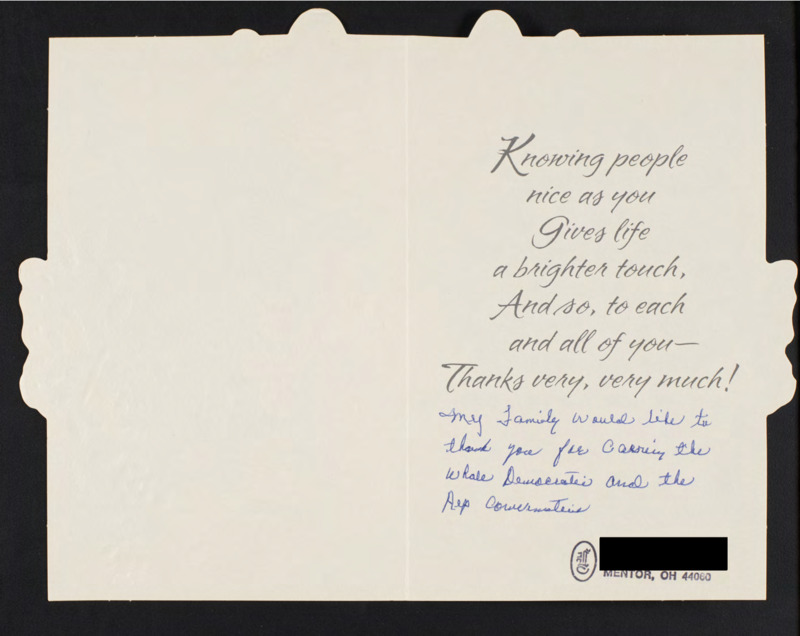 Knowing people
nice as you
Gives life
a brighter touch,
And so, to each
and all of you—
Thanks very, very much!
My Family would like to
thank you for Carring the
whole Democratic and the
Rep
MENTOR, OH 44060